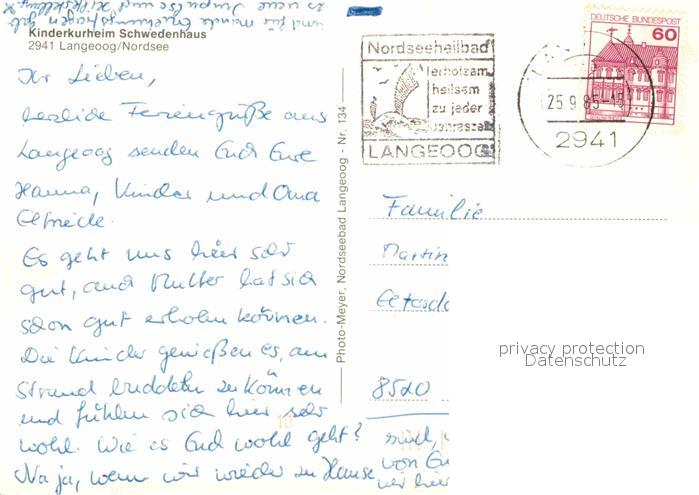 Kinderkurheim Schwedenhaus
2941 Langeoog/Nordsee
Ihr Lieben,
herzliche Feriengrüße aus
Langeoog senden Euch Eure
Hanna, Kinder und Oma
Elfriede.
Es geht uns hier sehr
gut, auch Mutter hat sich
schon gut erholen können.
Die Kinder genießen es, am
Strand buddeln zu können
und fühlen sich hier sehr
wohl. Wie es Euch wohl geht?
Na ja, wenn wir wieder zu Hause
sind,
von Eu
wir hier
und für meine Erziehungsfragen
zu neue Impulse und
Photo-Meyer, Nordseebad Langeoog - Nr. 134
Nordseeheilbad
erholsam
heilsam
zu jeder
Jahreszeit
LANGEOOG
25.9.85-15
2941
DEUTSCHE BUNDESPOST
60
Familie
Martin
8520
privacy protection
Datenschutz